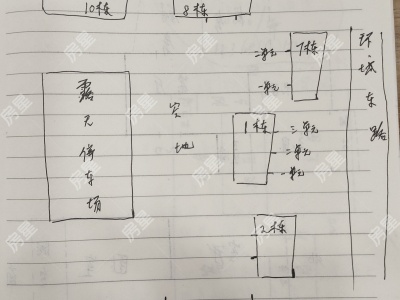 10栋
8栋
7栋
二单元
一单元
环城东路
露天停车场
空地
1栋
三单元
二单元
一单元
2栋
房里